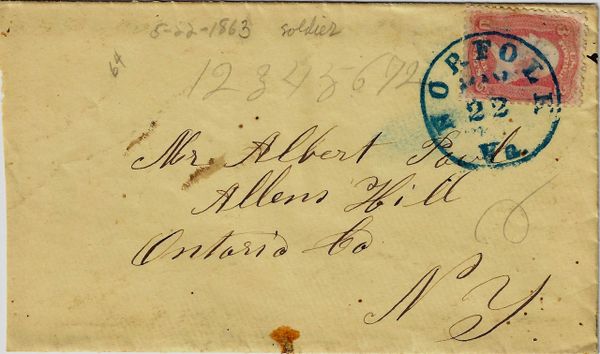 5-22-1863 soldier
64
12 3 4 5 6 72
NORFOLK
22
Va.
Mr Albert
Allens Hill
Ontario Co
N Y.